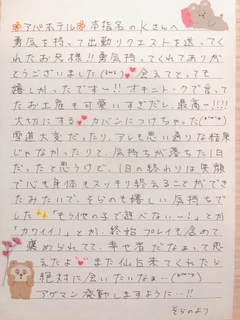 🌼アパホテル🌼本指名のKさんへ
勇気を持って出勤リクエストを送ってく
れたお兄様!!勇気持ってくれてありが
とうございました(*^^*)💕会えてとっても
嬉しかったです〜!!オキニトークで言って
たお土産も可愛いすぎだし、最高〜!!!!
大切にする💕カバンにつけちゃった(*^^*)
雪道大変だったり、アレも思い通りな結果
じゃなかったりと、気持ちが落ちた1日
だったと思うけど、1日の終わりは笑顔
で心も身体もスッキリ終えることができ
たみたいで、そらのも嬉しい気持ちで
した✨「もう他の子で遊べない〜!」とか
「カワイイ!」とか、終始プレイも含めて
褒められてて、幸せ者だなぁって思
えたよ💕また仙台来てくれたら
絶対に会いたいなぁ…(*^^*)
アゲマン発動しますように…!!
そらのより